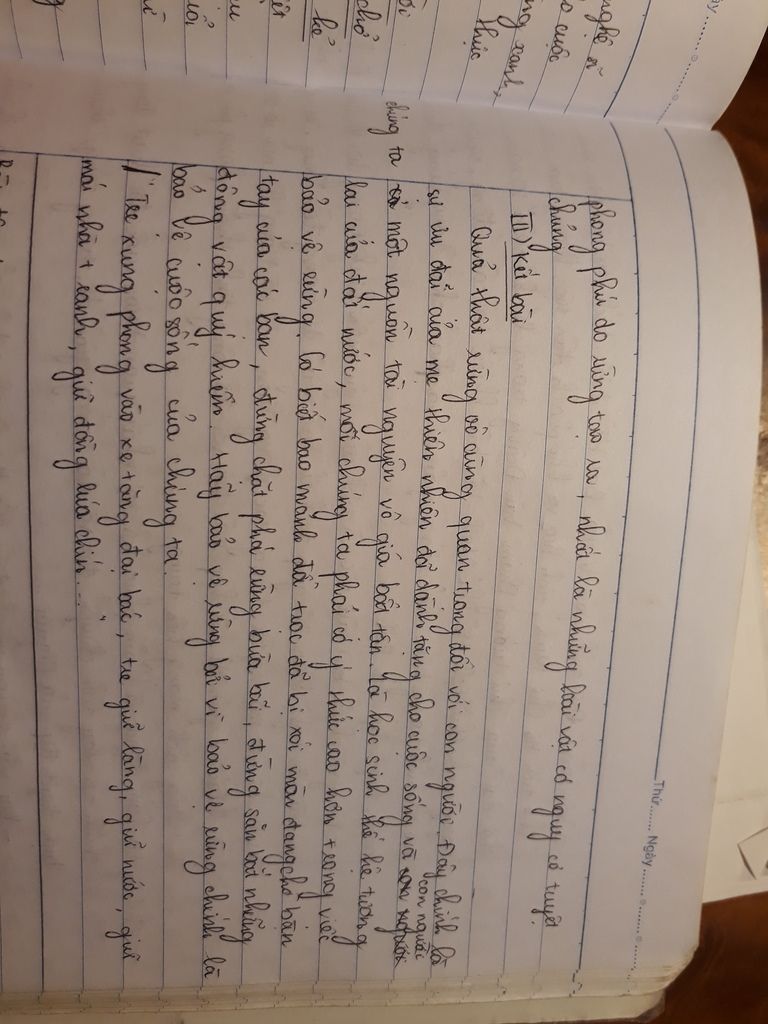 Thứ....... Ngày.............
phong phú do rừng tạo ra, nhất là những loài vật có nguy cơ tuyệt
chủng
III) Kết bài
Quả thật rừng vô cùng quan trọng đối với con người. Đây chính là
sự ưu đãi của mẹ thiên nhiên đã dành tặng cho cuộc sống và con người
chúng ta một nguồn tài nguyên vô giá bất tận. Là học sinh thế hệ tương
lai của đất nước, mỗi chúng ta phải có ý thức cao hơn trong việc
bảo vệ rừng. Có biết bao mảnh đất trọc đã bị xói mòn đang chờ bàn
tay của các bạn, đừng chặt phá rừng bừa bãi, đừng săn bắt những
động vật quý hiếm. Hãy bảo vệ rừng bởi vì bảo vệ rừng chính là
bảo vệ cuộc sống của chúng ta.
"Tre xung phong vào xe tăng đại bác, tre giữ làng, giữ nước, giữ
mái nhà tranh, giữ đồng lúa chín..."